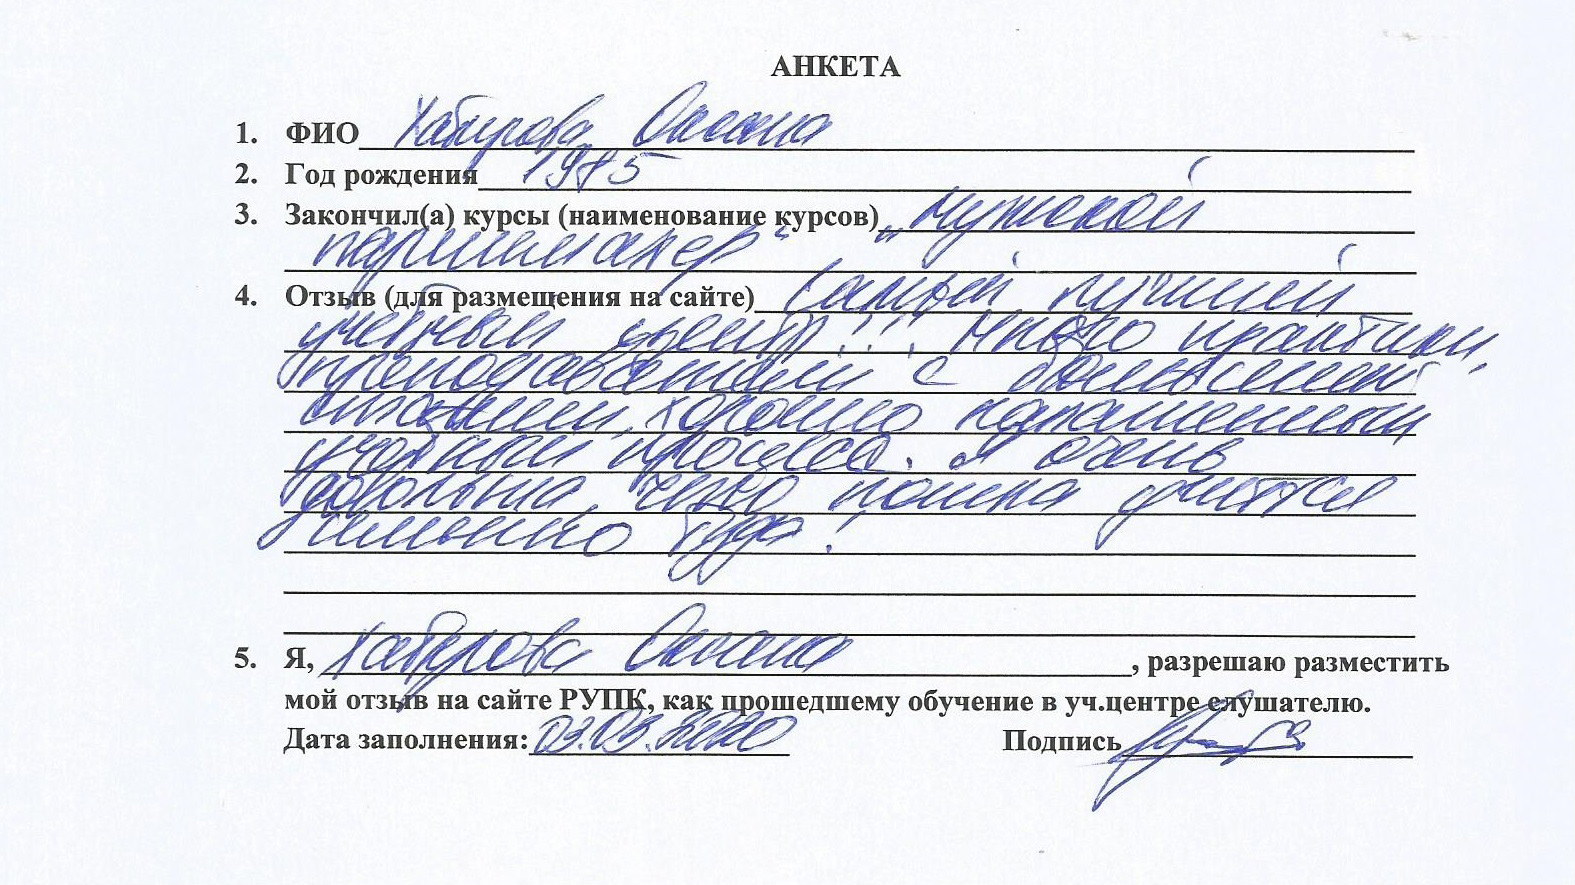 АНКЕТА
1. ФИО Хабирова Оксана
2. Год рождения 1985
3. Закончил(а) курсы (наименование курсов) „Мужской
парикмахер"
4. Отзыв (для размещения на сайте) Самый лучший
учебный центр!!! Много практики,
преподаватели с большим
стажем, хорошо налаженный
учебный процесс. Я очень
довольна, что пошла учится
именно туда!
5. Я, Хабирова Оксана, разрешаю разместить
мой отзыв на сайте РУПК, как прошедшему обучение в уч.центре слушателю.
Дата заполнения: 03.03.2020 Подпись